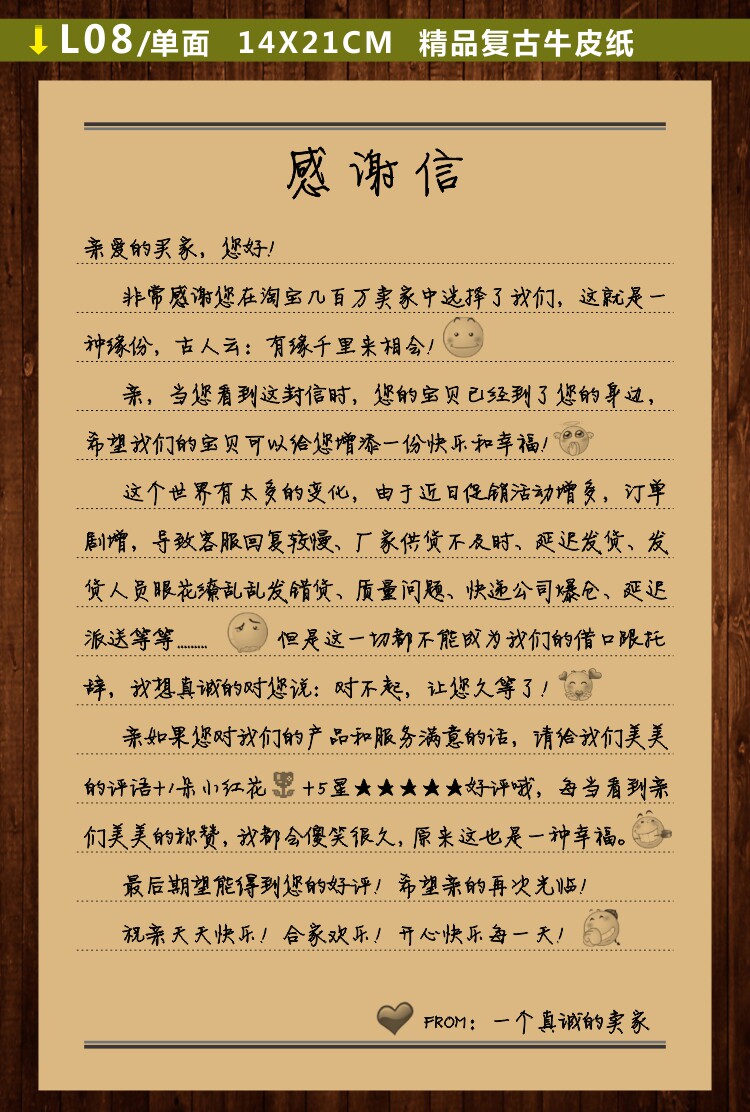 L08/单面 14X21CM 精品复古牛皮纸
感谢信
亲爱的买家，您好！
非常感谢您在淘宝几百万卖家中选择了我们，这就是一
种缘份，古人云：有缘千里来相会！
亲，当您看到这封信时，您的宝贝已经到了您的身边，
希望我们的宝贝可以给您增添一份快乐和幸福！
这个世界有太多的变化，由于近日促销活动增多，订单
剧增，导致客服回复较慢、厂家供货不及时、延迟发货、发
货人员眼花缭乱乱发错货、质量问题、快递公司爆仓、延迟
派送等等……… 但是这一切都不能成为我们的借口跟托
辞，我想真诚的对您说：对不起，让您久等了！
亲如果您对我们的产品和服务满意的话，请给我们美美
的评语+1朵小红花 +5星★★★★★好评哦，每当看到亲
们美美的称赞，我都会傻笑很久，原来这也是一种幸福。
最后期望能得到您的好评！希望亲的再次光临！
祝亲天天快乐！合家欢乐！开心快乐每一天！
FROM：一个真诚的卖家